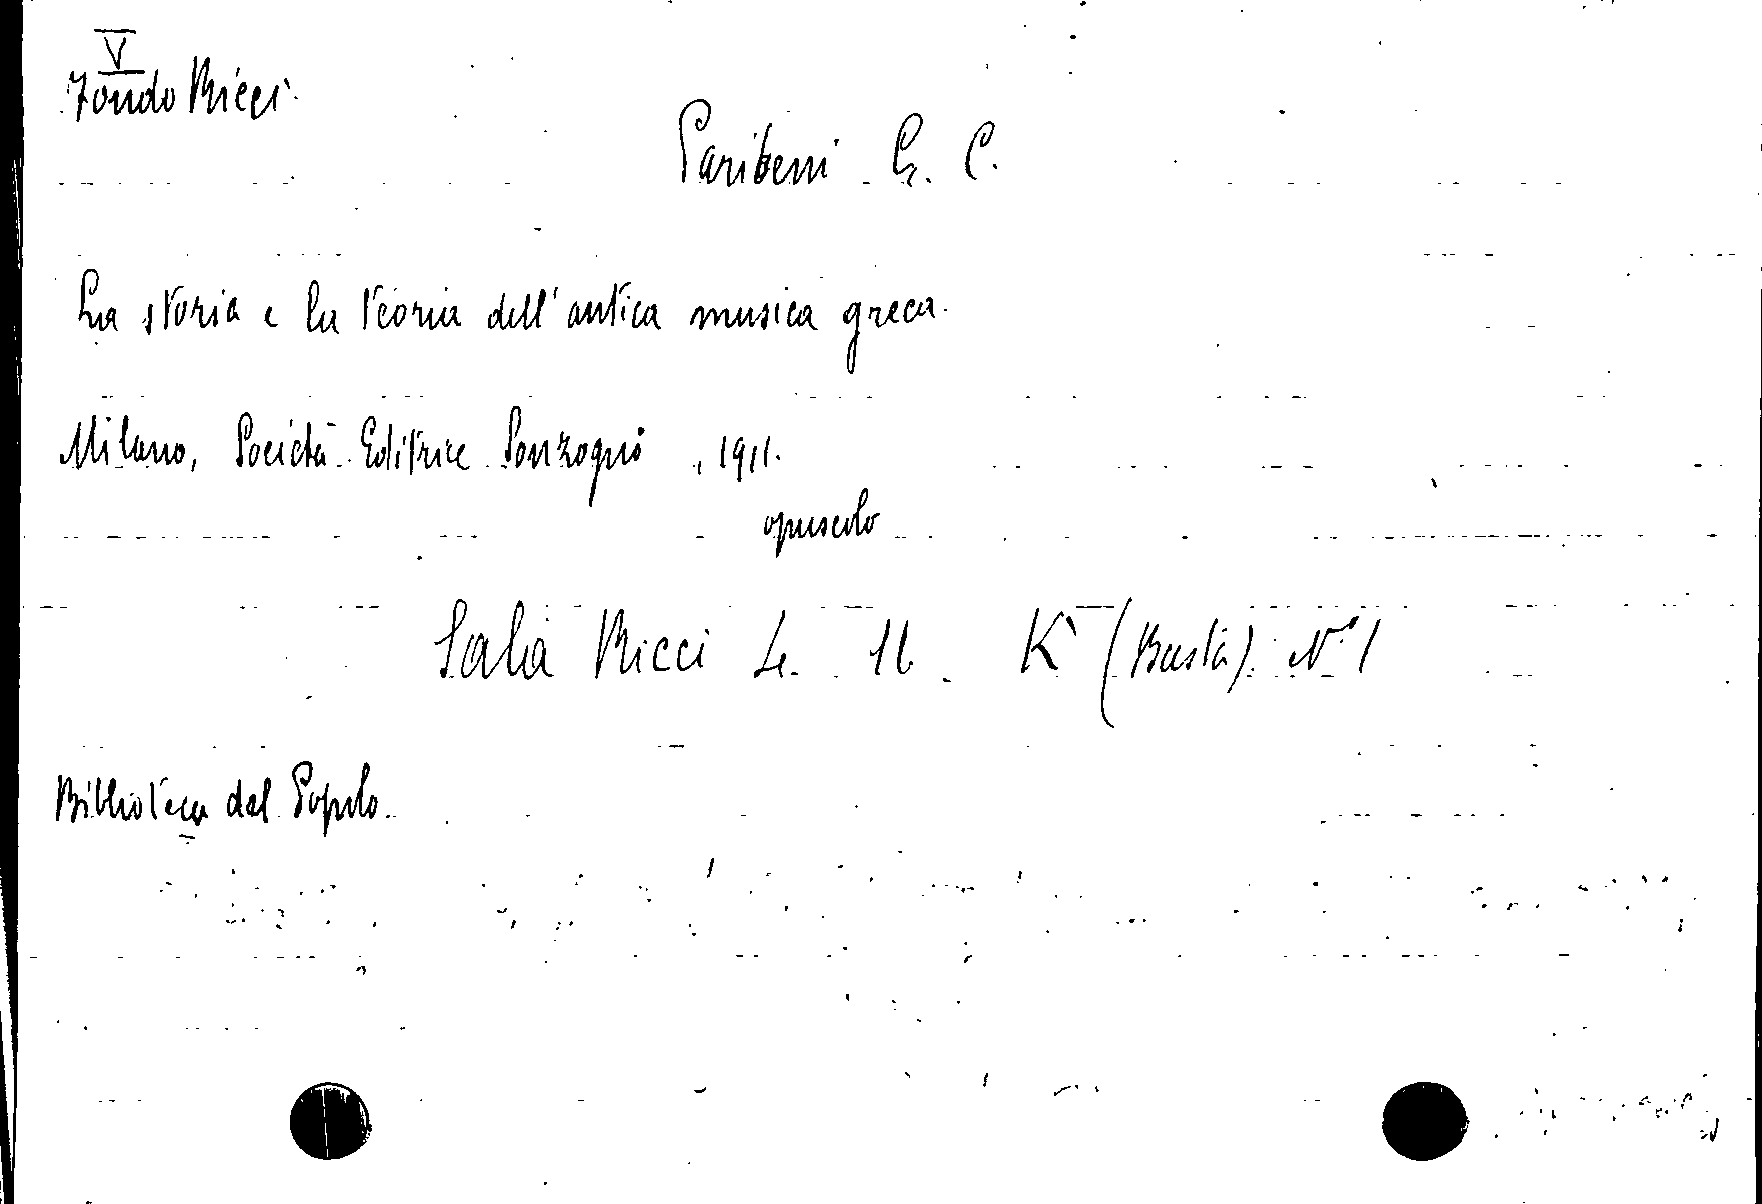 V
Fondo Ricci
Paribeni G. C.
La storia e la teoria dell'antica musica greca.
Milano, Società Editrice Sonzogno, 1911.
opuscolo
Sala Ricci L. 16 K (Busta) N° 1
Biblioteca del Popolo.